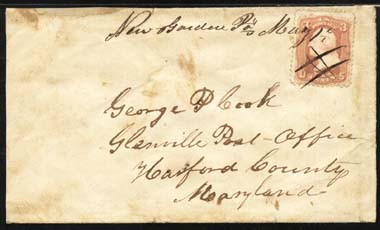 New Garden Pa May 12
George P Cook
Glenville Post-Office
Harford County
Maryland